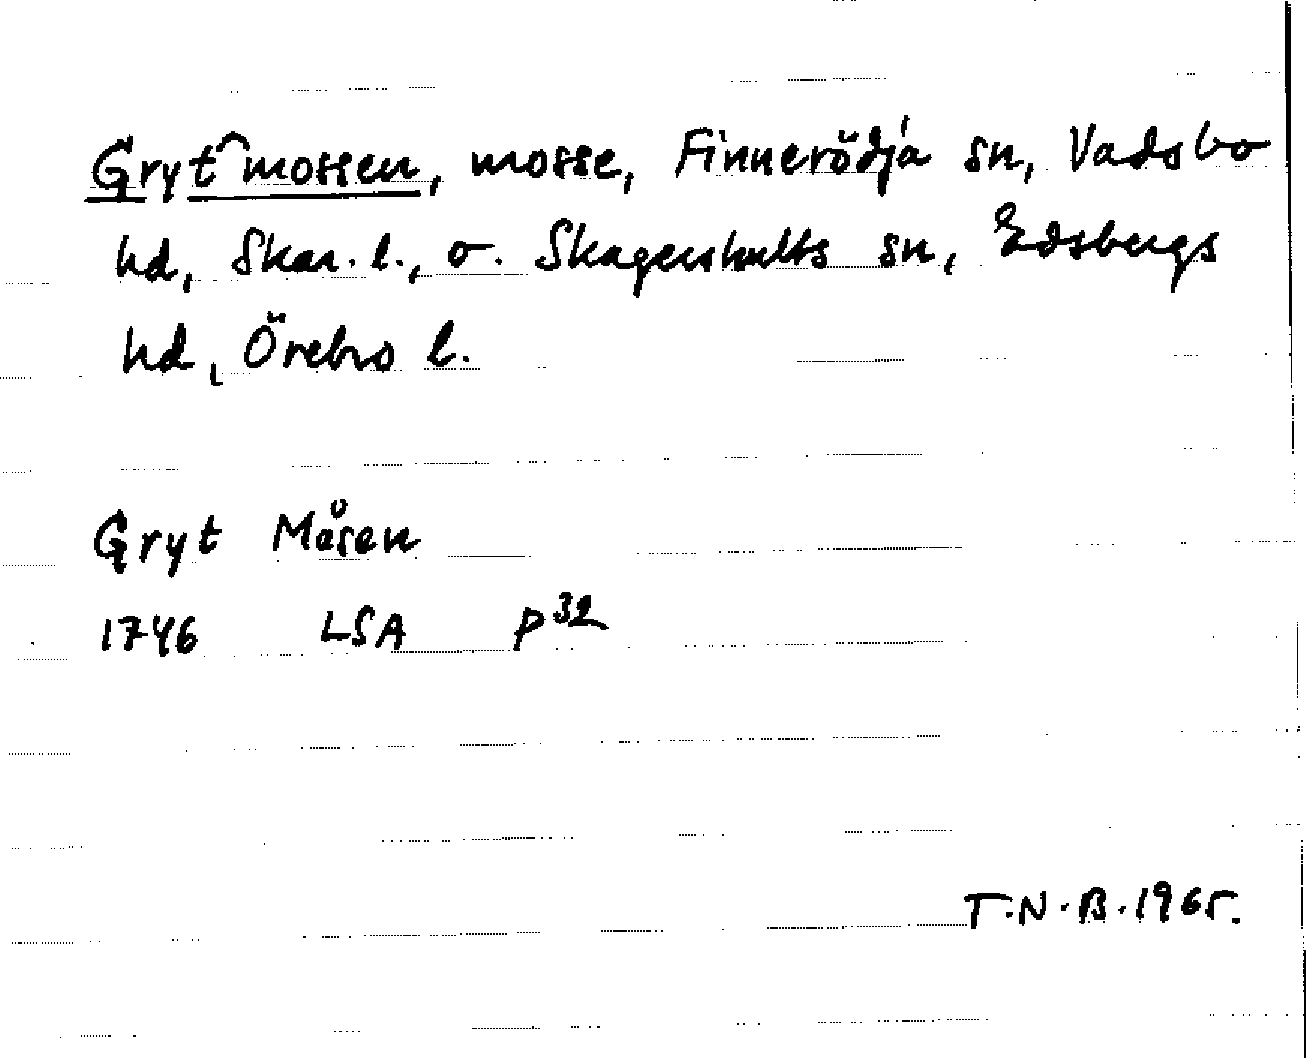 Gryt⁀mossen, mosse, Finnerödja sn, Vadsbo
hd, Skar. l., o. Skagershults sn, Edsbergs
hd, Örebro l.
Gryt Måsen
1746 LSA P 32
T.N.B. 1965.